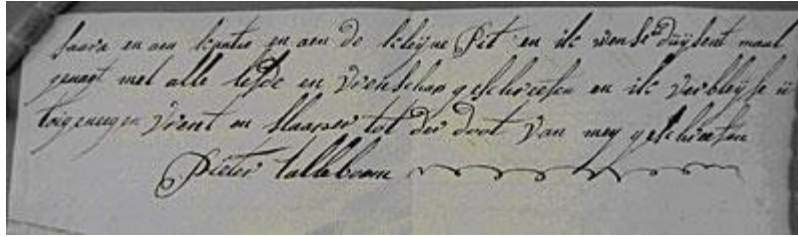 saara en aen kantie en aen de kleijne Pit en ik wense duijsent maal
genagt met alle lefde en vrenschap geschreefen en ik verbleijfe u
toegeneegen vrient en slaaver tot der doot van meij geschreefen
Pieter Talleboom